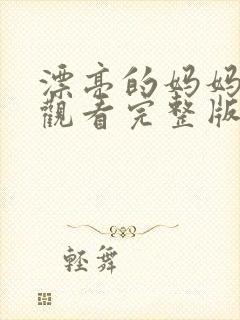 漂亮的妈妈
觀看完整版
輕舞